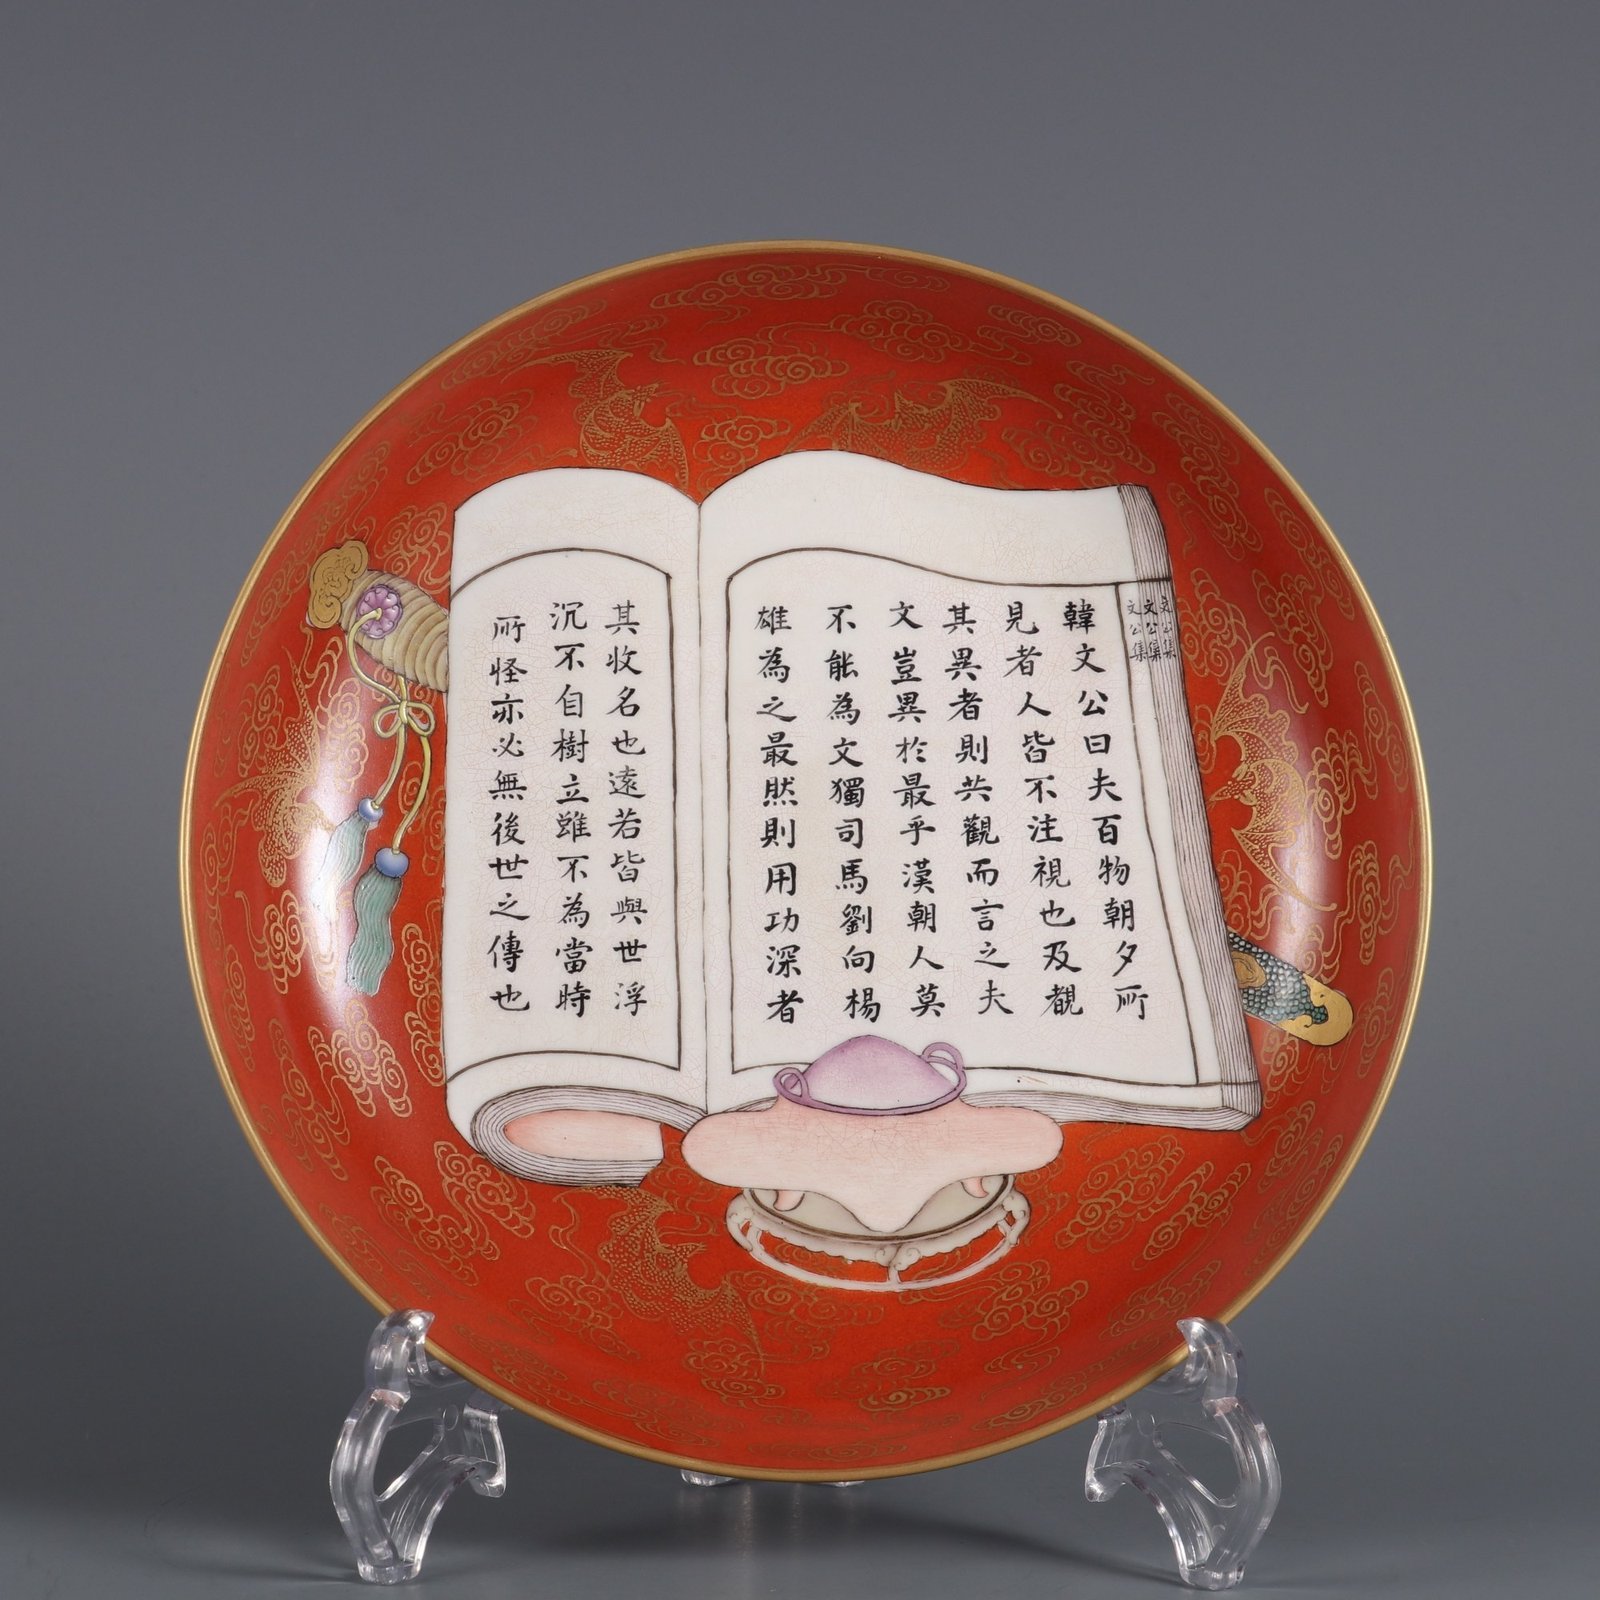 文公集
文公集
文公集
韓文公曰夫百物朝夕所
見者人皆不注視也及覩
其異者則共觀而言之夫
文豈異於最乎漢朝人莫
不能為文獨司馬劉向楊
雄為之最然則用功深者
其收名也遠若皆與世浮
沉不自樹立雖不為當時
所怪亦必無後世之傳也